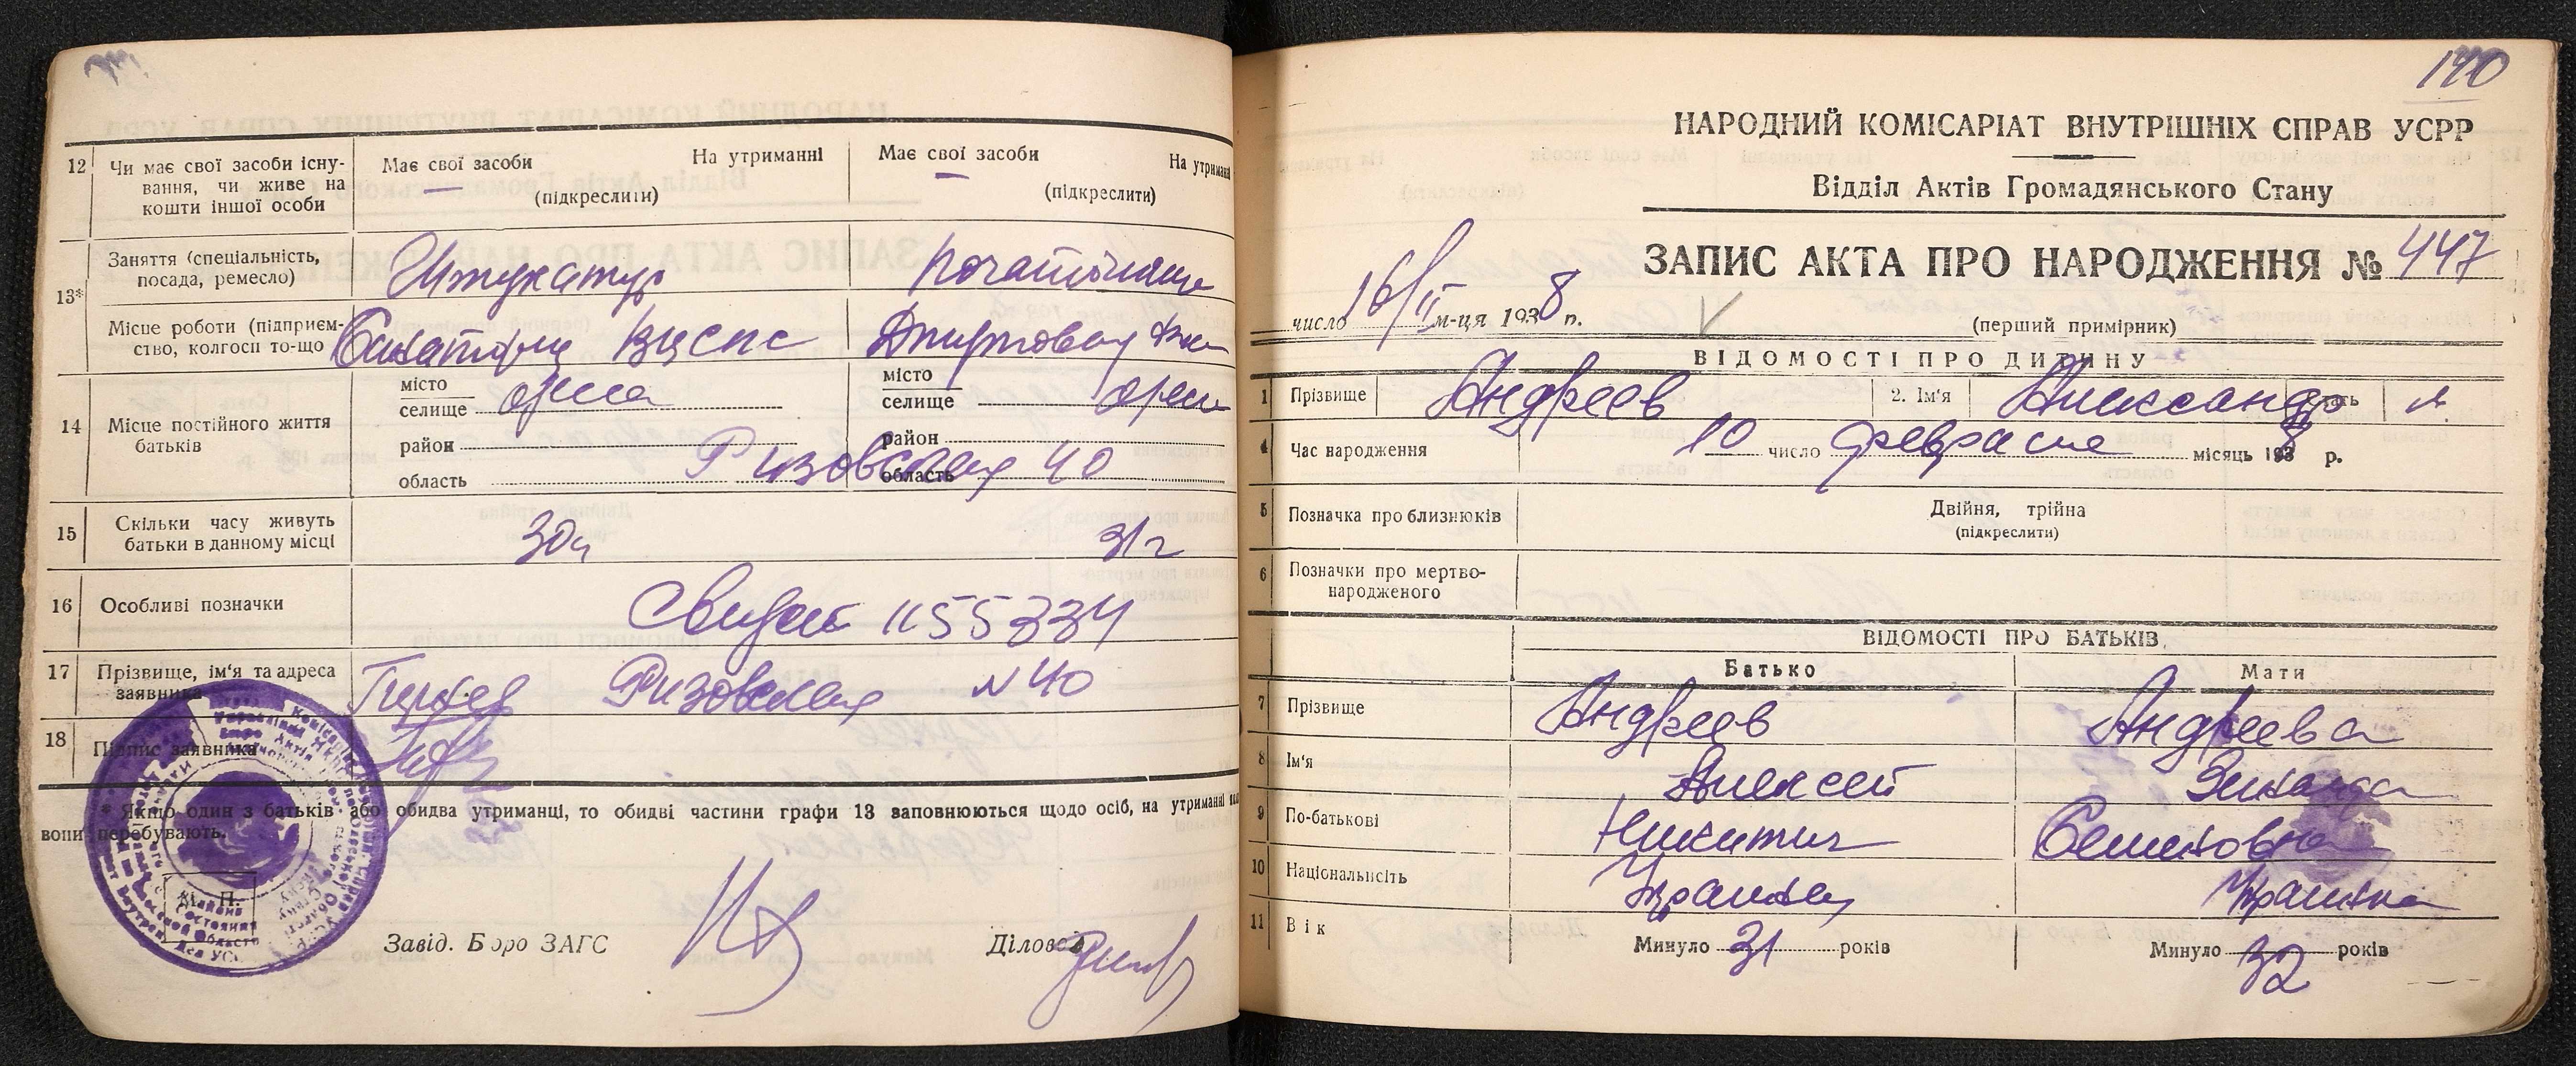 12 Чи має свої засоби існу-
вання, чи живе на
кошти іншої особи
Має свої засоби На утриманні
(підкреслити)
Має свої засоби На утриманні
(підкреслити)
13* Заняття (спеціальність,
посада, ремесло)
Штукатур
Місце роботи (підприєм-
ство, колгосп то-що
Санаторий ВЦСПС
14 Місце постійного життя
батьків
місто
селище одесса
район
область
місто
селище одесса
район
область
Ризовская 40
15 Скільки часу живуть
батьки в данному місці
30л 31г
16 Особливі позначки
Свидет 1155334
17 Прізвище, ім'я та адреса
заявника
Ризовская №40
18 Підпис заявника
* Якщо один з батьків або обидва утриманці, то обидві частини графи 13 заповнюються щодо осіб, на утриманні
вони перебувають.
М. П.
Завід. Бюро ЗАГС Діловод
140
НАРОДНИЙ КОМІСАРІАТ ВНУТРІШНІХ СПРАВ УСРР
Відділ Актів Громадянського Стану
ЗАПИС АКТА ПРО НАРОДЖЕННЯ № 447
число 16/II м-ця 1938 р.
(перший примірник)
ВІДОМОСТІ ПРО ДИТИНУ
1 Прізвище Андреев 2. Ім'я Александр стать м
4 Час народження 10 число февраля місяць 1938 р.
5 Позначка про близнюків Двійня, трійна
(підкреслити)
6 Позначки про мертво-
народженого
ВІДОМОСТІ ПРО БАТЬКІВ
Батько Мати
7 Прізвище Андреев Андреева
8 Ім'я Алексей Зинаида
9 По-батькові Никитич Семеновна
10 Національність Украинец Украинка
11 Вік Минуло 31 років Минуло 32 років